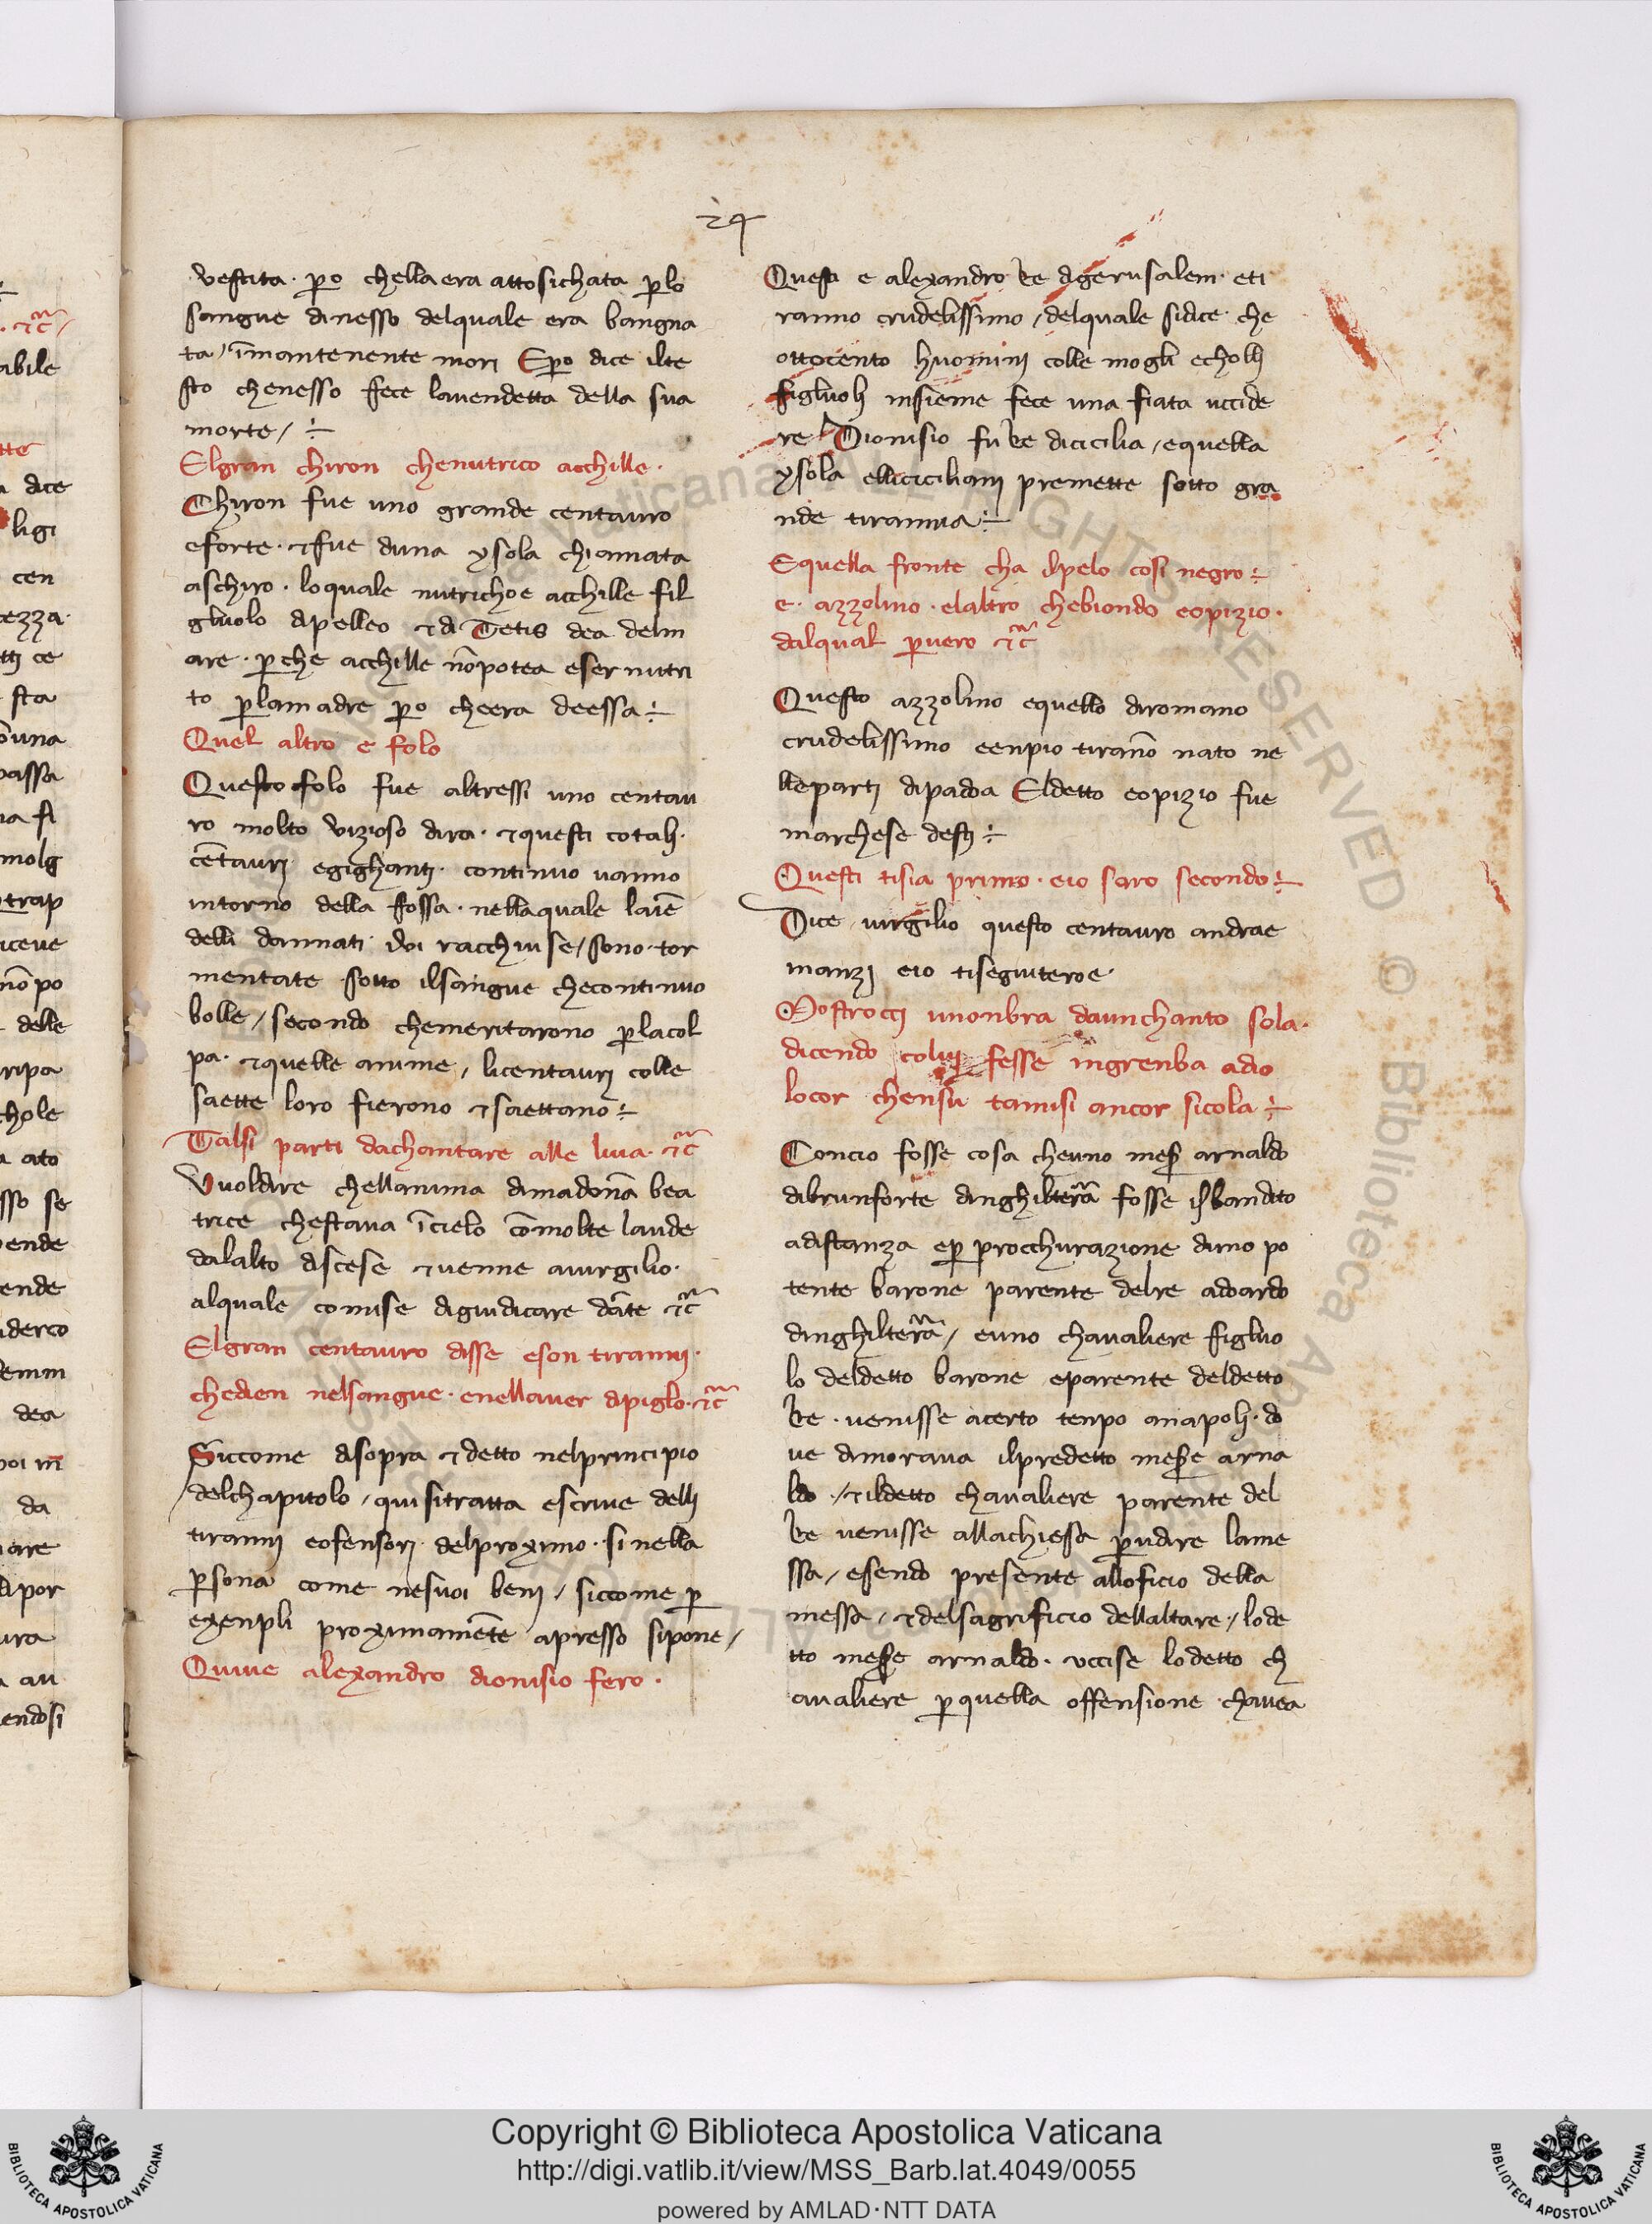 24
vestita · p̱o chella era attosichata p̱lo
sangue dinesso delquale era bangna
ta / īmantenente mori Ep̱o dice ilte
sto chenesso fece lauendetta della sua
morte / ÷
Elgran chiron chenutrico acchille ·
Chyron fue uno grande centauro
eforte · ⁊ fue duna ysola chiamata
aschiro · loquale nutrichoe acchille fil
gluolo dpelleo ⁊ di Tetis dea delm
are · p̱che acchille nōpotea eser nutri
to p̱lamadre p̱o cheera deessa ÷
Quel altro e folo
Questo folo fue altressi uno centau
ro molto vizioso dira · ⁊ questi cotali ·
cētauri egighanti · continuo uanno
intorno della fossa · nellaquale laiē
delli dannati iui racchiuse / sono · tor
mentate sotto ilsangue checontinuo
bolle / secondo chemeritarono p̱lacol
pa · ⁊ quelle anime / licentauri colle
saette loro fierono ⁊ saettano ÷
Talsi parti dachantare alle luia · ⁊c̃
Vuoldire chellanima dimadonā bea
trice chestaua īcielo cōmolte laude
dalalto discese ⁊ uenne auirgilio ·
alquale comise diguidicare dāte ⁊c̃
Elgran centauro disse eson tiranni ·
chedien nelsangue · enellauer dipiglo · ⁊c̃
Siccome disopra ⁊ detto nelprincipio
delchapitolo / quisitratta escriue delli
tiranni eofensori delproximo · si nella
p̱sona come nesuoi beni / siccome p̱
exenpli proximamēte apresso sipone /
Quiue alexandro dionisio fero ·
Questi e alexandro re digerusalem · eti
ranno crudelissimo / delquale sidice che
ottocento huomini colle mogli echolli
figluoli insieme fece una fiata uccide
re Dionisio fu re dicicilia / equella
ysola elliciciliani premette sotto gra
nde tirannia ÷
Equella fronte cha ilpelo cosi negro ÷
e · azzolino · elaltro chebiondo eopizio ·
dalqual p̱uero ⁊c̃
Questo azzolino equello diromano
crudelissimo eenpio tirañ̄o nato ne
lleparti dipadoa Eldetto eopizio fue
marchese desti ÷
Questi tisia primo · eio saro secondo ÷
Dice uirgilio questo centauro andrae
inanzi eio tiseguiteroe ·
Mostrocci unonbra daunchanto sola ·
dicendo colui fesse ingrenba adio
locor chensu tamisi ancor sicola ÷
Concio fosse cosa cheuno mes̱ arnaldo
dibrunforte dinghilterā fosse isbandito
adistanza ep̱ procchurazione duno po
tente barone parente delre adoardo
dinghilterā / euno chaualiere figluo
lo deldetto barone eparente deldetto
Re · uenisse acerto tenpo anapoli · do
ue dimoraua ilpredetto mes̱e arna
ldo · / ⁊ ildetto chaualiere parente del
Re uenisse allachiesa p̱udire lame
ssa / esendo presente alloficio della
messa / ⁊ delsagrificio dellaltare / lode
tto mes̱e arnaldo · uccise lodetto ch
aualiere p̱quella offensione chauea
Copyright © Biblioteca Apostolica Vaticana
http://digi.vatlib.it/view/MSS_Barb.lat.4049/0055
powered by AMLAD · NTT DATA
BIBLIOTECA APOSTOLICA VATICANA
BIBLIOTECA APOSTOLICA VATICANA